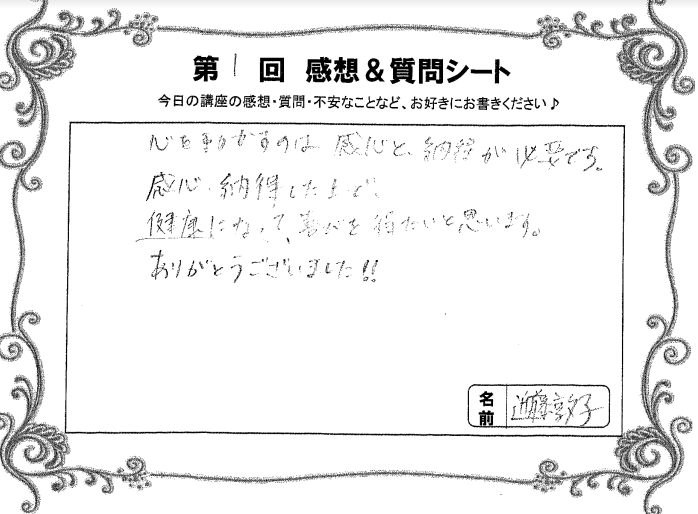 第1回 感想&質問シート
今日の講座の感想・質問・不安なことなど、お好きにお書きください♪
心を動かすのは 感心と、納得が必要です。
感心、納得した上で、
健康になって、喜びを得たいと思います。
ありがとうございました!!
名前 近藤敦子